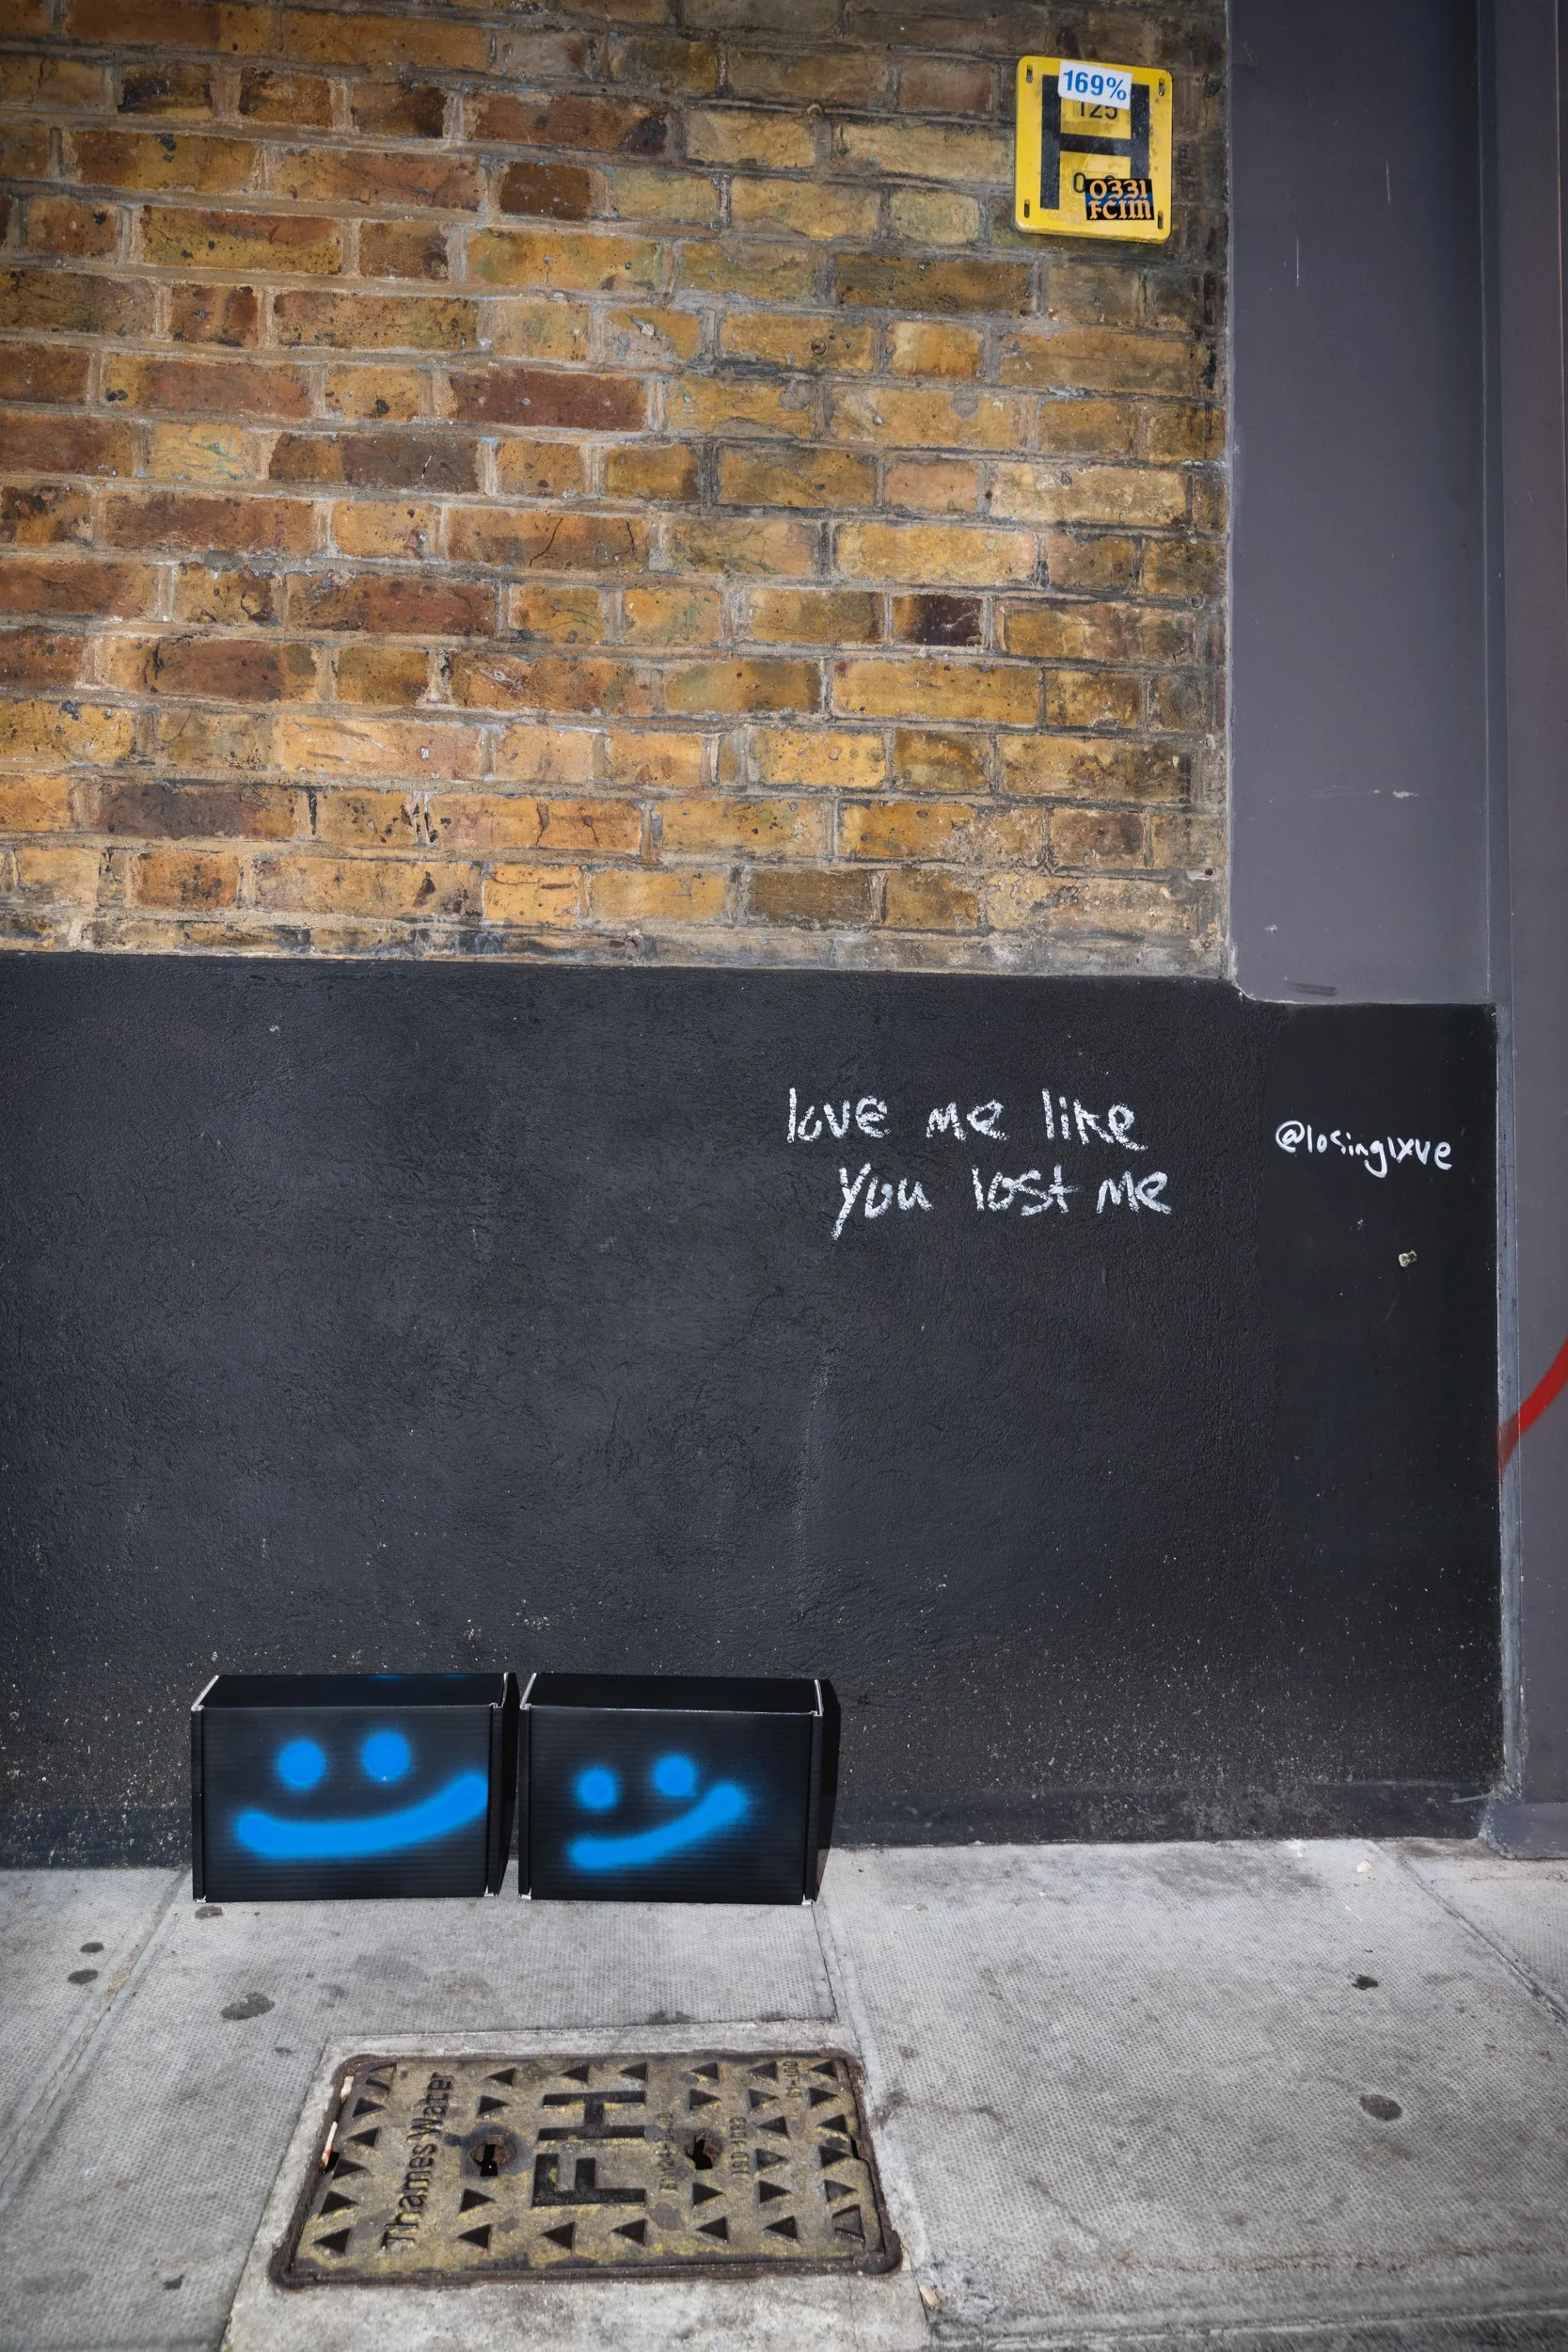 169%
125
0331
FCIM
love me like
you lost me
@losinglxve
Thames Water
FH